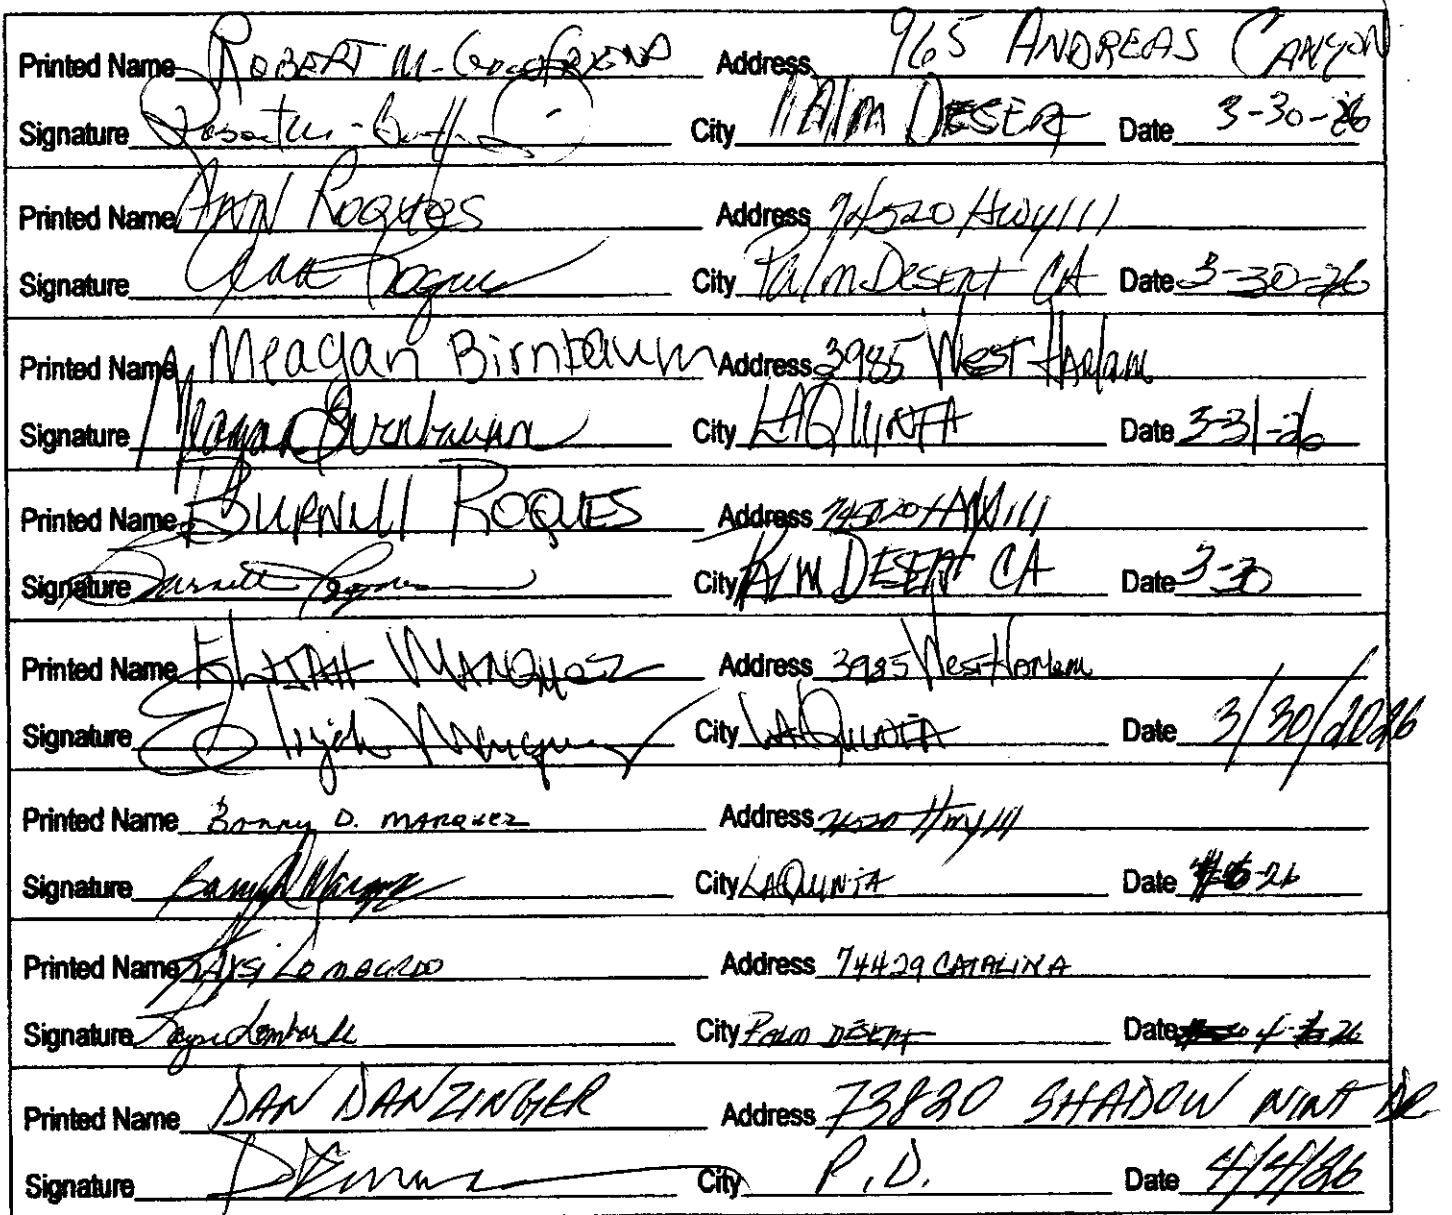 Printed Name ROBERT M. Address 965 ANDREAS CANYON
Signature City PALM DESERT Date 3-30-26
Printed Name ANN ROQUES Address 74520 Hwy 111
Signature Ann Roques City Palm Desert CA Date 3-30-26
Printed Name Meagan Birnbaum Address 3985 West Harlam
Signature Meagan Birnbaum City LAQUINTA Date 3-31-26
Printed Name BURNell ROQUES Address HWY 111
Signature Burnell Roques City PALM DESERT CA Date 3-30
Printed Name ELIJAH MARQUEZ Address 3985 West Harlem
Signature Elijah Marquez City LAQUINTA Date 3/30/2026
Printed Name D. MARQUEZ Address Hwy 111
Signature City LAQUINTA Date
Printed Name Address 74429 CATALINA
Signature City PALM DESERT Date
Printed Name DAN DANZINGER Address 73820 SHADOW DR
Signature City P.D. Date 4/4/26